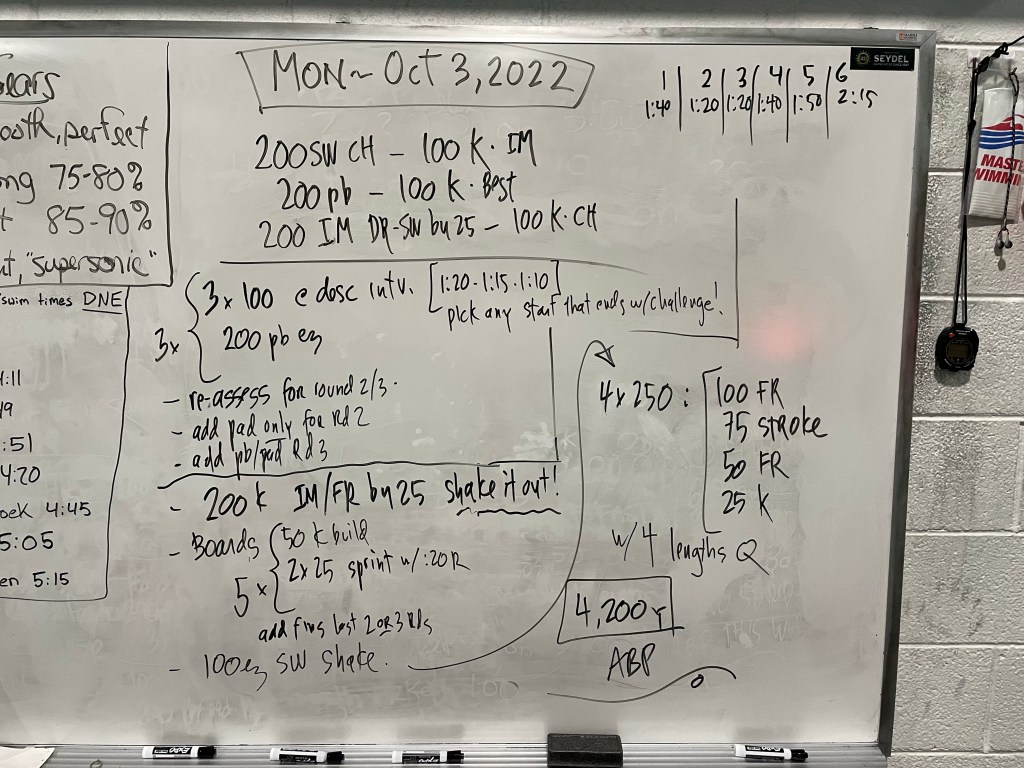 ears
ooth, perfect
ng 75-80%
t 85-90%
t, "supersonic"
swim times DNE
4:11
49
:51
4:20
oek 4:45
5:05
en 5:15
MON~ Oct 3, 2022
1 2 3 4 5 6
1:40 1:20 1:20 1:40 1:50 2:15
SEYDEL
200 SW CH – 100 K · IM
200 pb – 100 K · Best
200 IM DR-SW by 25 – 100 K · CH
3x
3 x 100 @ desc intv. [1:20 - 1:15 - 1:10]
pick any start that ends w/challenge!
200 pb ez
- re-assess for round 2/3.
- add pad only for Rd 2
- add pb/pad Rd 3
- 200 k IM/FR by 25 shake it out!
- Boards
5 x
50 k build
2x25 sprint w/ :20 R
add fins last 2 OR 3 Rds
- 100 ez SW shake.
4 x 250 :
100 FR
75 stroke
50 FR
25 K
w/ 4 lengths Q
4,200 Y
ABP
MAST
WIMMIN
EXPO